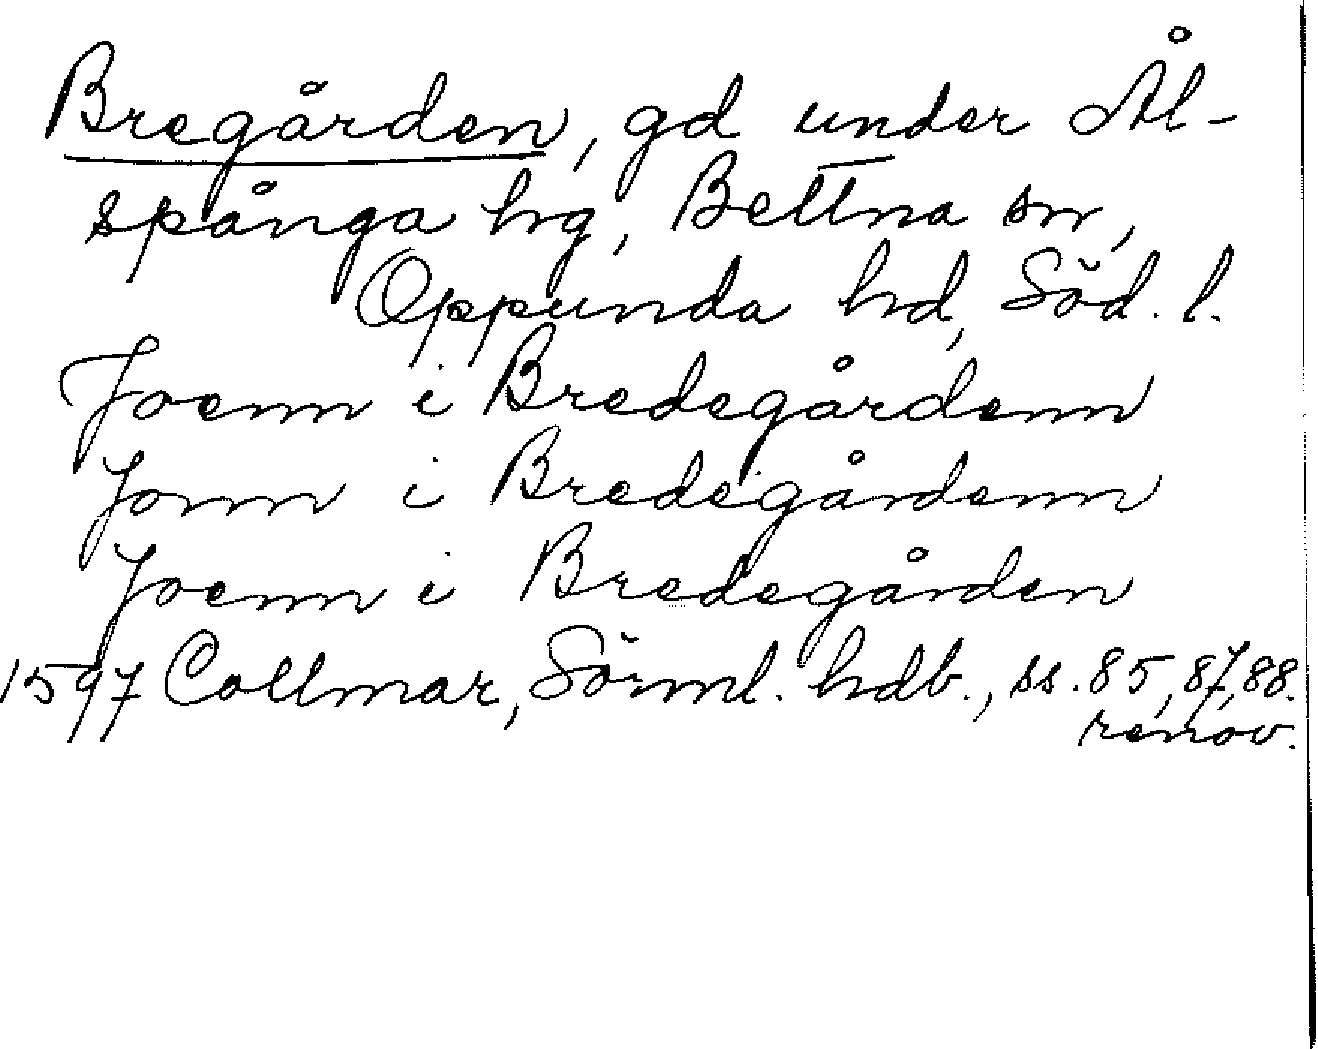 Bregården, gd under Ål-
spånga hrg, Bettna sn,
Oppunda hd, Söd. l.
Joenn i Bredegårdenn
Jonn i Bredegårdenn
Joenn i Bredegården
1597 Collmar, Sörml. hdb., ss. 85, 87, 88.
renov.